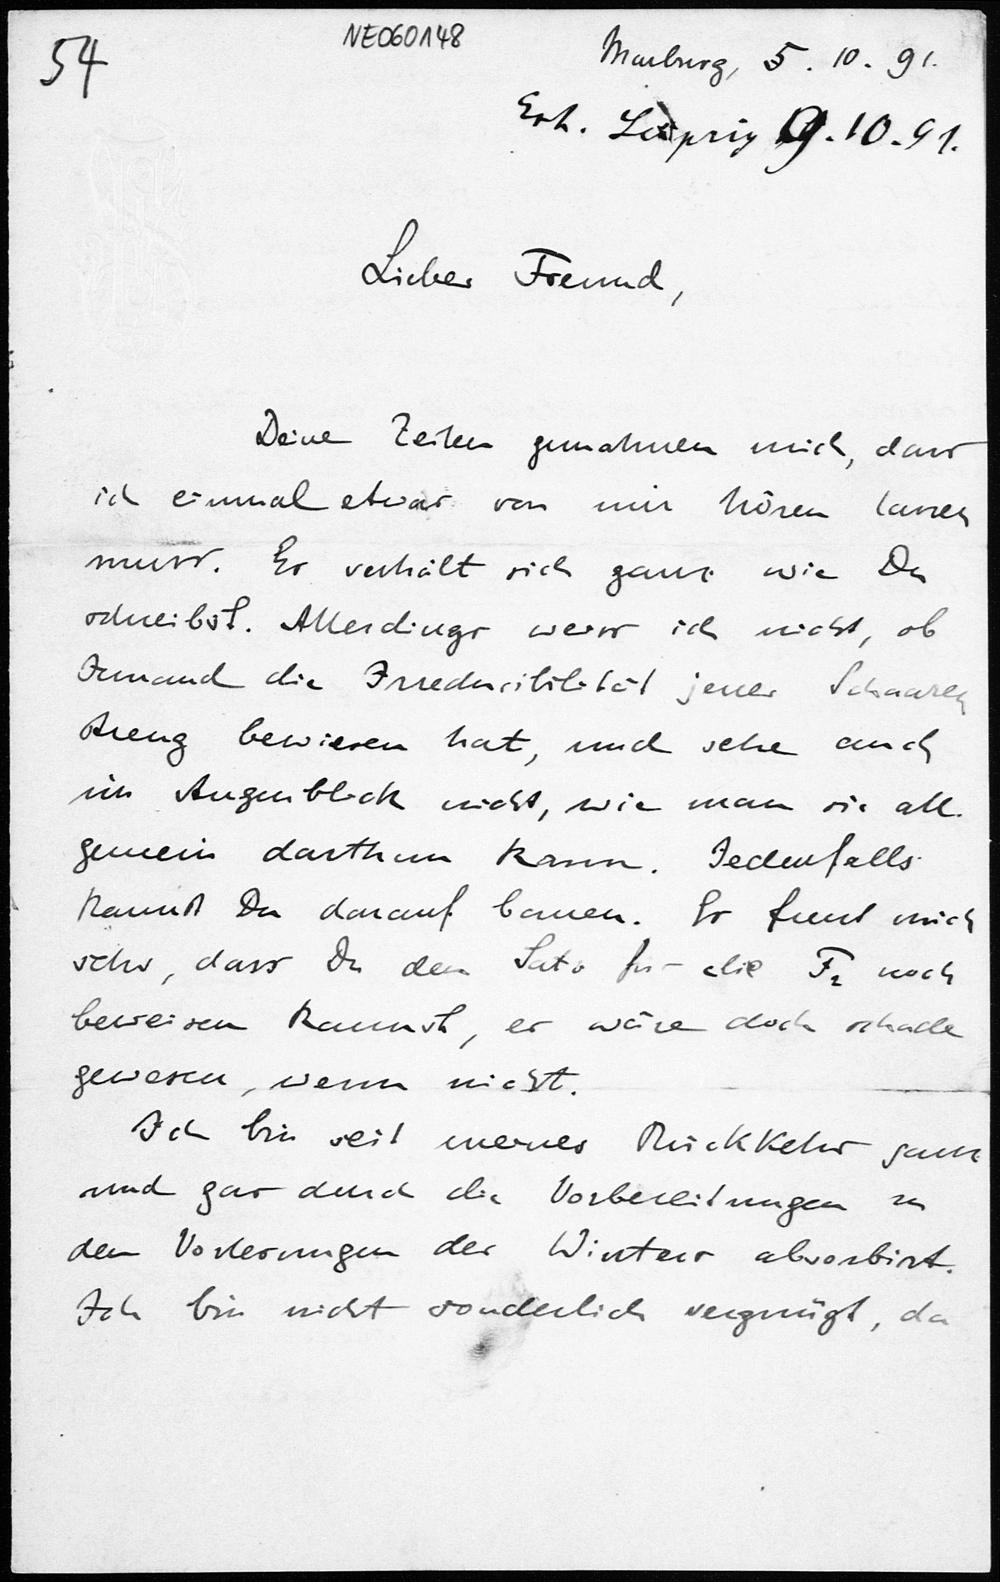 54
NE060148
Marburg, 5. 10. 91.
Erh. Leipzig 9.10.91.
Lieber Freund,
Deine Zeilen gemahnen mich, dass
ich einmal etwas von mir hören lassen
muss. Es verhält sich ganz wie Du
schreibst. Allerdings weiss ich nicht, ob
Jemand die Irreducibilität jener Schaaren
streng bewiesen hat, und sehe auch
im Augenblick nicht, wie man sie all
gemein darthun kann. Jedenfalls
kannst Du darauf bauen. Es freut mich
sehr, dass Du den Satz für die F₂ noch
beweisen kannst, es wäre doch schade
gewesen, wenn nicht.
Ich bin seit meiner Rückkehr ganz
und gar durch die Vorbereitungen zu
den Vorlesungen des Winters absorbirt.
Ich bin nicht sonderlich vergnügt, da